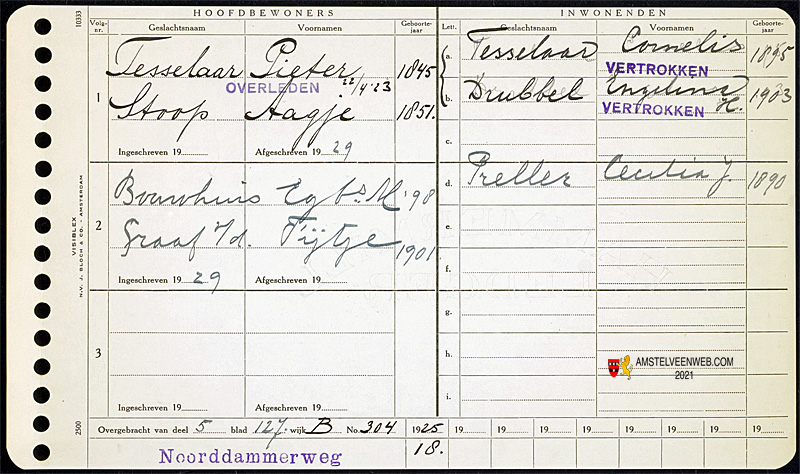 HOOFDBEWONERS
Volg-nr. Geslachtsnaam Voornamen Geboorte-jaar
1 Tesselaar Pieter 1845
OVERLEDEN 22/4 '23
Stoop Aagje 1851.
Ingeschreven 19 Afgeschreven 19 29
2 Bouwhuis Egb.s M. '98
Graaf v/d. Fijtje 1901
Ingeschreven 19 29 Afgeschreven 19
3
Ingeschreven 19 Afgeschreven 19
INWONENDEN
Lett. Geslachtsnaam Voornamen Geboorte-jaar
a. Tesselaar Cornelis 1895
VERTROKKEN
b. Drubbel Engelina H. 1903
VERTROKKEN
c.
d. Preller Cecilia J. 1890
e.
f.
g.
h.
i.
AMSTELVEENWEB.COM
2021
Overgebracht van deel 5 blad 127. wijk B No. 304 1925 19 19 19 19 19 19 19 19
Noorddammerweg 18.
10333
VISIBLEX
N.V. J. BLOCH & CO. - AMSTERDAM
2500